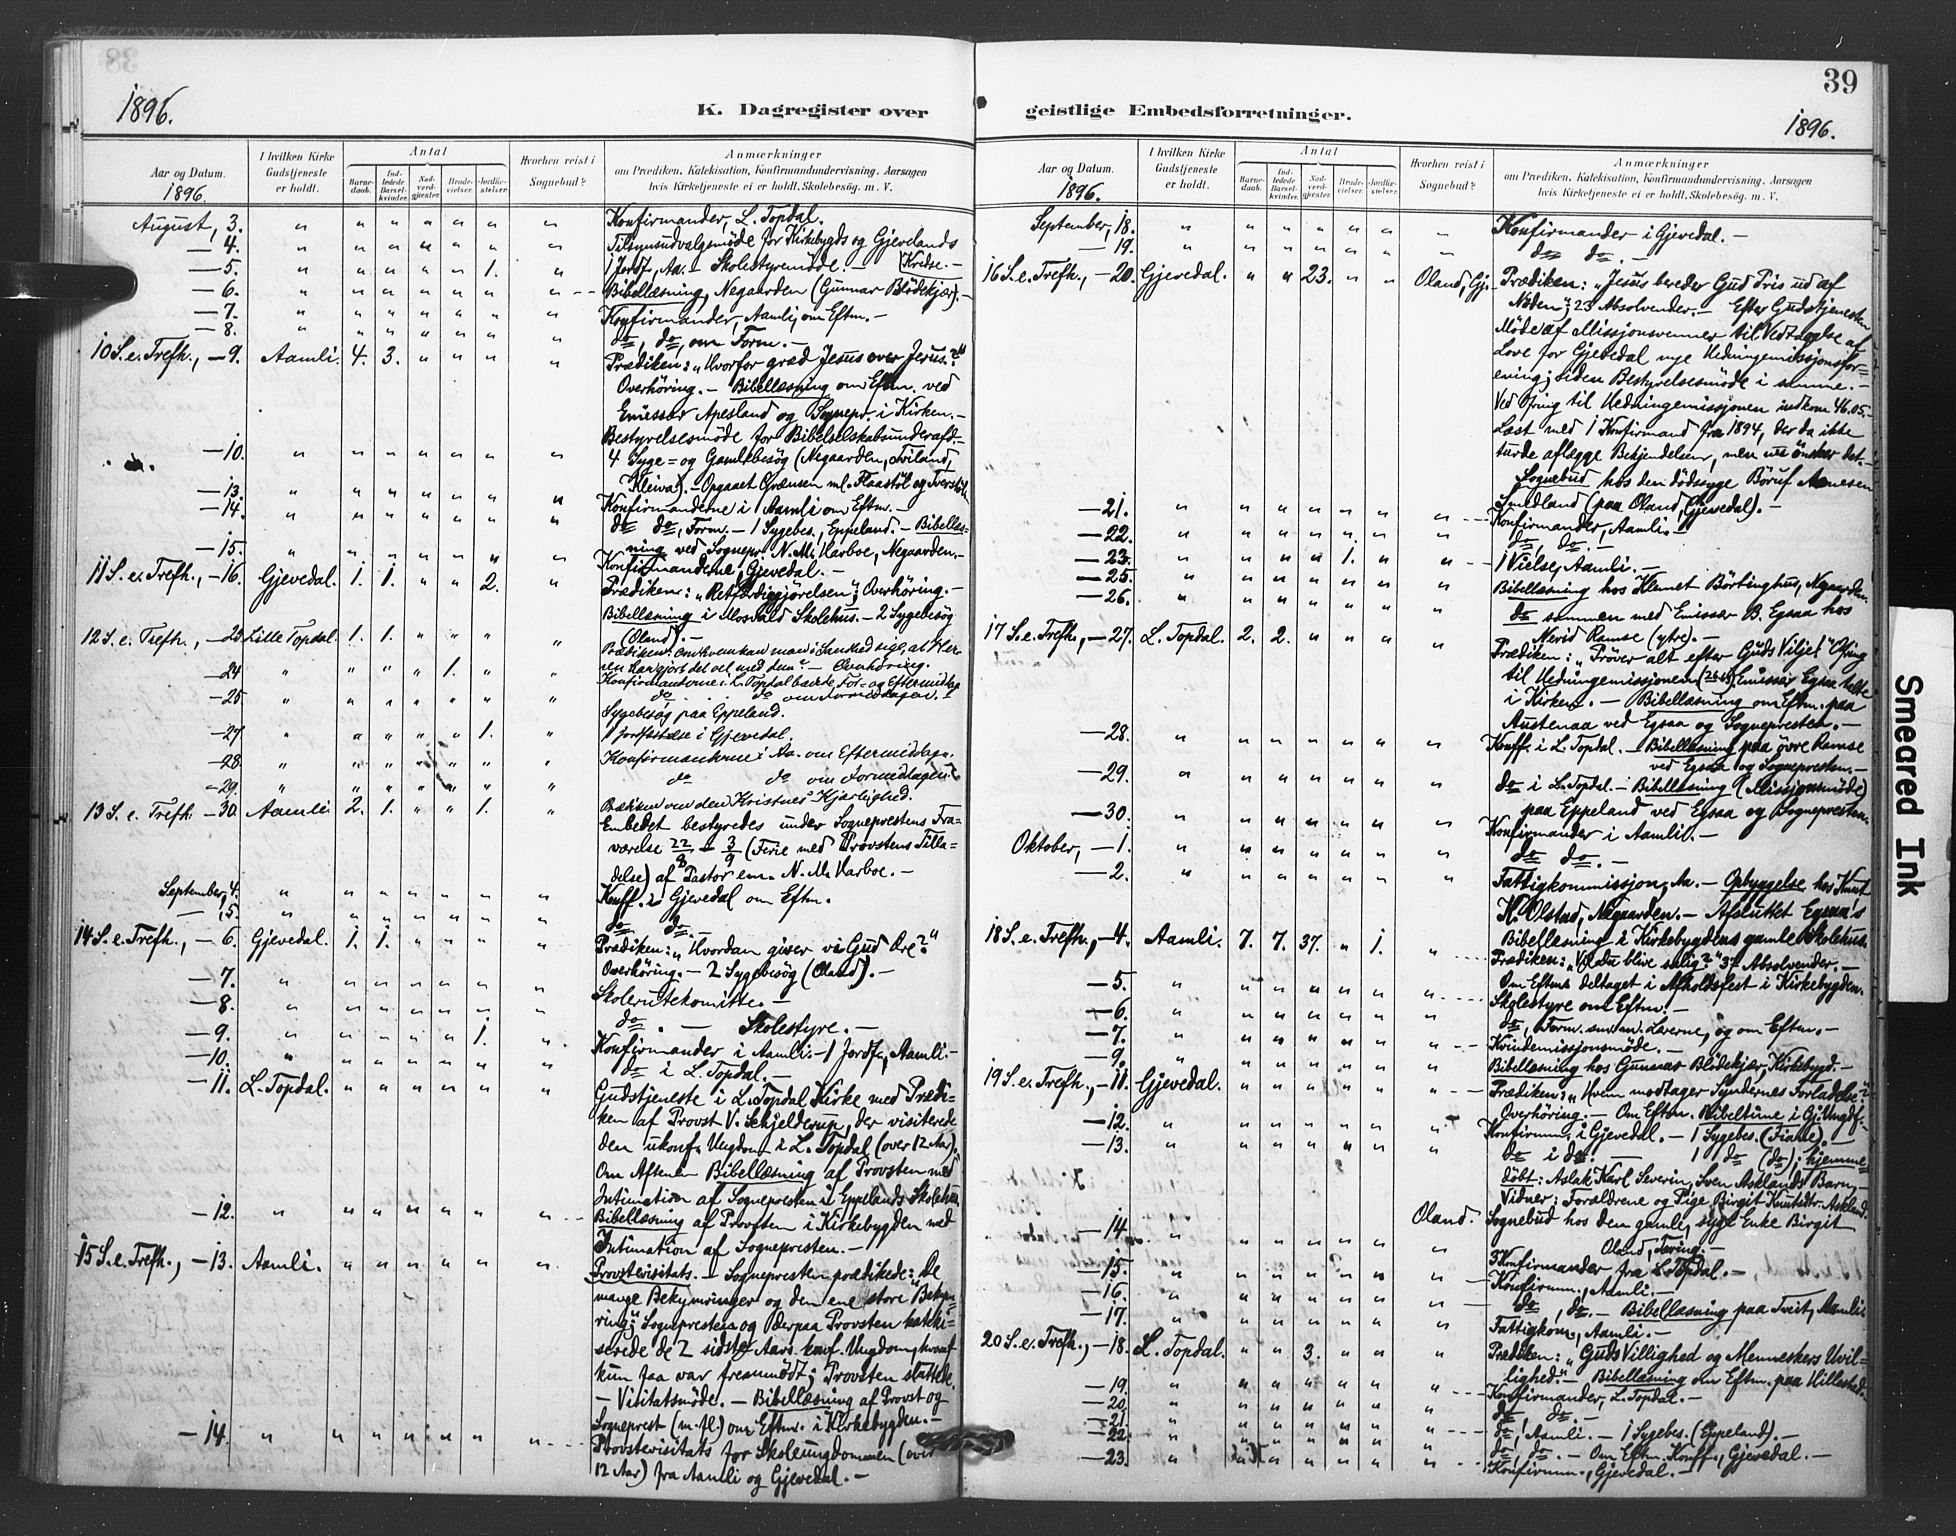 39
1896.
K. Dagregister over
geistlige Embedsforretninger.
1896.
Aar og Datum.
1896.
I hvilken Kirke Gudstjeneste er holdt.
Antal
Barnedaab.
Indledede Barselkvinder.
Nadverdgjester.
Brudevielser.
Jordfæstelser.
Hvorhen reist i Sognebud?
Anmærkninger
om Prædiken, Katekisation, Konfirmandundervisning, Aarsagen
hvis Kirketjeneste ei er holdt, Skolebesøg. m. V.
August, 3. " " " " " " " Konfirmander, L. Topdal.
— 4. " " " " " " " Tilsynsudvalgsmøde for Kirkebygds og Gjevelands
Kredse.
— 5. " " " " " 1. " 1 Jordf., Aa. — Skolestyremøde. —
— 6. " " " " " " " Bibellæsning, Negaarden (Gunnar Blödekjær). —
— 7. " " " " " " " Konfirmander, Aamli, om Eftm. —
— 8. " " " " " " " do, do, om Form. —
10 S. e. Trefh., — 9. Aamli. 4. 3. " " " " Prædiken: "Hvorfor græd Jesus over Jerus.?"
Overhöring. — Bibellæsning om Eftm. ved
Emissær Apesland og Sognepr. i Kirken. —
Bestyrelsesmöde for Bibelselskabsunderafd. —
— 10. " " " " " " " 4 Syge- og Gamlebesøg (Negaarden, Sviland,
Kleiva). — Opgaaet Grænsen ml. Flaastöl og
— 13. " " " " " " " Konfirmanderne i Aamli om Eftm. —
— 14. " " " " " " " do do, Form. — 1 Sygebes., Eppeland. — Bibellæs-
ning ved Sognepr. N. M. Harboe, Negaarden. —
— 15. " " " " " " " Konfirmanderne, Gjevedal. —
11 S. e. Trefh., — 16. Gjevedal. 1. 1. " " 2. " Prædiken: "Retfærdiggjörelsen"; Overhöring. —
Bibellæsning i Mosvald Skolehus. — 2 Sygebesög
(Oland). —
12 S. e. Trefh., — 23. Lille Topdal. 1. 1. " " " " Prædiken: Om Hvem kan man i Sandhed sige, at Her-
ren har gjort det vel med dem? — Overhöring.
— 24 " " " " 1. " " Konfirmanterne i L. Topdal baade For- og Eftermiddag
— 25. " " " " " " " do do om Formiddagen. 1
Sygebesøg paa Eppeland.
— 27 " " " " " 1. " 1 Jordfæstelse i Gjevedal.
— 28. " " " " " " " Konfirmanterne i Aa. om Eftermiddagen.
— 29. " " " " " " " do do om Formiddagen.
13 S. e. Trefh. — 30. Aamli 2. 1. " " 1. " Prædiken om den Kristnes Kjærlighed.
Embedet bestyredes under Sogneprestens Fra-
værelse 22/8 — 3/9 (Ferie med Provstens Tilla-
delse) af Pastor em. N. M. Harboe. —
September, 4. " " " " " " " Konff. i Gjevedal om Eftm.
— 5. " " " " " " " do do. —
14 S. e. Trefh., — 6. Gjevedal. 1. 1. " " " " Prædiken: "Hvordan giver vi Gud Ære?"
Overhöring. — 2 Sygebesög (Oland). —
— 7. " " " " " " " Skolerutekomitte. —
— 8. " " " " " " " do. — Skolestyre. —
— 9. " " " " " 1. " Konfirmander i Aamli. — 1 Jordf., Aamli. —
— 10. " " " " " " " do i L. Topdal. —
— 11. L. Topdal. " " " " " " Gudstjeneste i L. Topdal Kirke med Prædi-
ken af Provst V. Schjelderup, der visiterede
den ukonf. Ungdom i L. Topdal (over 12 Aar).
Om Aftenen Bibellæsning af Provsten med
Intimation af Sognepresten i Eppelands Skolehus.
— 12. " " " " " " " Bibellæsning af Provsten i Kirkebygden med
Intimation af Sognepresten. —
15 S. e. Trefh., — 13. Aamli. " " " " " " Provstevisitats. — Sognepresten prædikede: "De
mange Bekymringer og den ene store Bekym-
ring"; Sognepresten og Derpaa Provsten kateki-
serede de 2 sidste Aars konf. Ungdom, hvoraf
kun faa var fremmödt; Provsten sluttede.
— Visitatsmöde. — Bibellæsning af Provst og
Sogneprest (m. fl.) om Eftm. i Kirkebygden. —
— 14. " " " " " " " Provstevisitats for Skoleungdommen (over
12 Aar) fra Aamli og Gjevedal. —
Aar og Datum.
1896.
I hvilken Kirke Gudstjeneste er holdt.
Antal
Barnedaab.
Indledede Barselkvinder.
Nadverdgjester.
Brudevielser.
Jordfæstelser.
Hvorhen reist i Sognebud?
Anmærkninger
om Prædiken, Katekisation, Konfirmandundervisning, Aarsagen
hvis Kirketjeneste ei er holdt, Skolebesøg. m. V.
September, 18. " " " " " " " Konfirmander i Gjevedal. —
— 19. " " " " " " " do do. —
16 S. e. Trefh., — 20. Gjevedal. " " 23. " " Oland, Gj. Prædiken: "Jesus bereder Gud Pris ud af
Nöden"; 23 Absolvender. — Efter Gudstjenesten
Möde af Missjonsvenner til Vedtagelse af
Love for Gjevedal nye Hedningemissjonsfor-
ening; siden Bestyrelsesmöde i samme. —
Ved Ofring til Hedningemissjonen indkom 46.05. —
Læst med 1 Konfirmand fra 1894, der da ikke
turde aflægge Bekjendelsen, men nu önsker det. —
Sognebud hos den dödssyge Böruf Aanesen
Smedland (paa Oland, Gjevedal). —
— 21. " " " " " " " Konfirmander, Aamli. —
— 22. " " " " " " " do, do. —
— 23. " " " " 1. " " 1 Vielse, Aamli. —
— 25. " " " " " " " Bibellæsning hos Klemet Börtinghus, Negaarden.
— 26. " " " " " " " do sammen med Emissær B. Egsaa hos
Nerid Ramse (ytre). —
17 S. e. Trefh., — 27. L. Topdal. 2. 2. " " " " Prædiken: "Pröver alt efter Guds Vilje!" Ofring
til Hedningemissjonen Emissær Egsaa talte
i Kirken. — Bibellæsning om Eftm. paa
Austenaa ved Egsaa og Sognepresten. —
— 28. " " " " " " " Konff. i L. Topdal. — Bibellæsning paa övre Ramse
ved Egsaa og Sognepresten. —
— 29. " " " " " " " do i L. Topdal. — Bibellæsning (Missjonsmöde)
paa Eppeland ved Egsaa og Sognepresten. —
— 30. " " " " " " " Konfirmander i Aamli. —
Oktober, — 1. " " " " " " " do do. —
— 2. " " " " " " " Fattigkommissjon, Aa. — Opbyggelse hos Knut
K. Olstad, Negaarden. — Afsluttet Egsaa's
Bibellæsning i Kirkebygdens gamle Skolehus.
18 S. e. Trefh., — 4. Aamli. 7. 7. 37. " 1. " Prædiken: "Vil du blive salig?" 37 Absolvender. —
Om Eftm. deltaget i Afholdsfest i Kirkebygden.
— 5. " " " " " " " Skolestyre om Eftm. —
— 6. " " " " " " " do, Form. sm. m. Lærerne, og om Eftm. —
— 7. " " " " " " " Kvindemissjonsmöde. —
— 9. " " " " " " " Bibellæsning hos Gunnar Blödekjær, Kirkebygd. —
19 S. e. Trefh., — 11. Gjevedal. " " " " " " Prædiken: "Hvem modtager Syndernes Forladelse?"
Overhöring. — Om Eftm. Bibeltime i Gj. Ungdf. —
— 12. " " " " " " " Konfirmm. i Gjevedal. — 1 Sygebes. (Fiane). —
— 13. " " " " " " " do i do. — 1 do (do); hjemme-
döbt: Aslak Karl Severin, Sven Asklands Barn, —
Vidner: Forældrene og Pige Birgit Knutsdtr. Askland.
— 14. " " " " " " Oland. Sognebud hos den gamle, syge Enke Birgit
Oland, Tering. —
— 15. " " " " " " " 3 Konfirmander fra L. Topdal. —
— 16. " " " " " " " Konfirmm., Aamli. —
— 17. " " " " " " " do, do. — Bibellæsning paa Tveit, Aamli.
Fattigkom., Aamli. —
20 S. e. Trefh., — 18. L. Topdal. " " 3. " " " Prædiken: "Guds Villighed og Menneskers Uvil-
lighed." — Bibellæsning om Eftm. paa Hillestad.
— 19. " " " " " " " Konfirmander, L. Topdal. —
— 20. " " " " " " " do do. —
— 21. " " " " " " " do, Aamli. — 1 Sygebes. (Eppeland). —
— 22. " " " " " " " do, do. — Om Eftm. Konff., Gjevedal. —
— 23. " " " " " " " Konfirmm., Gjevedal. —
Smeared Ink